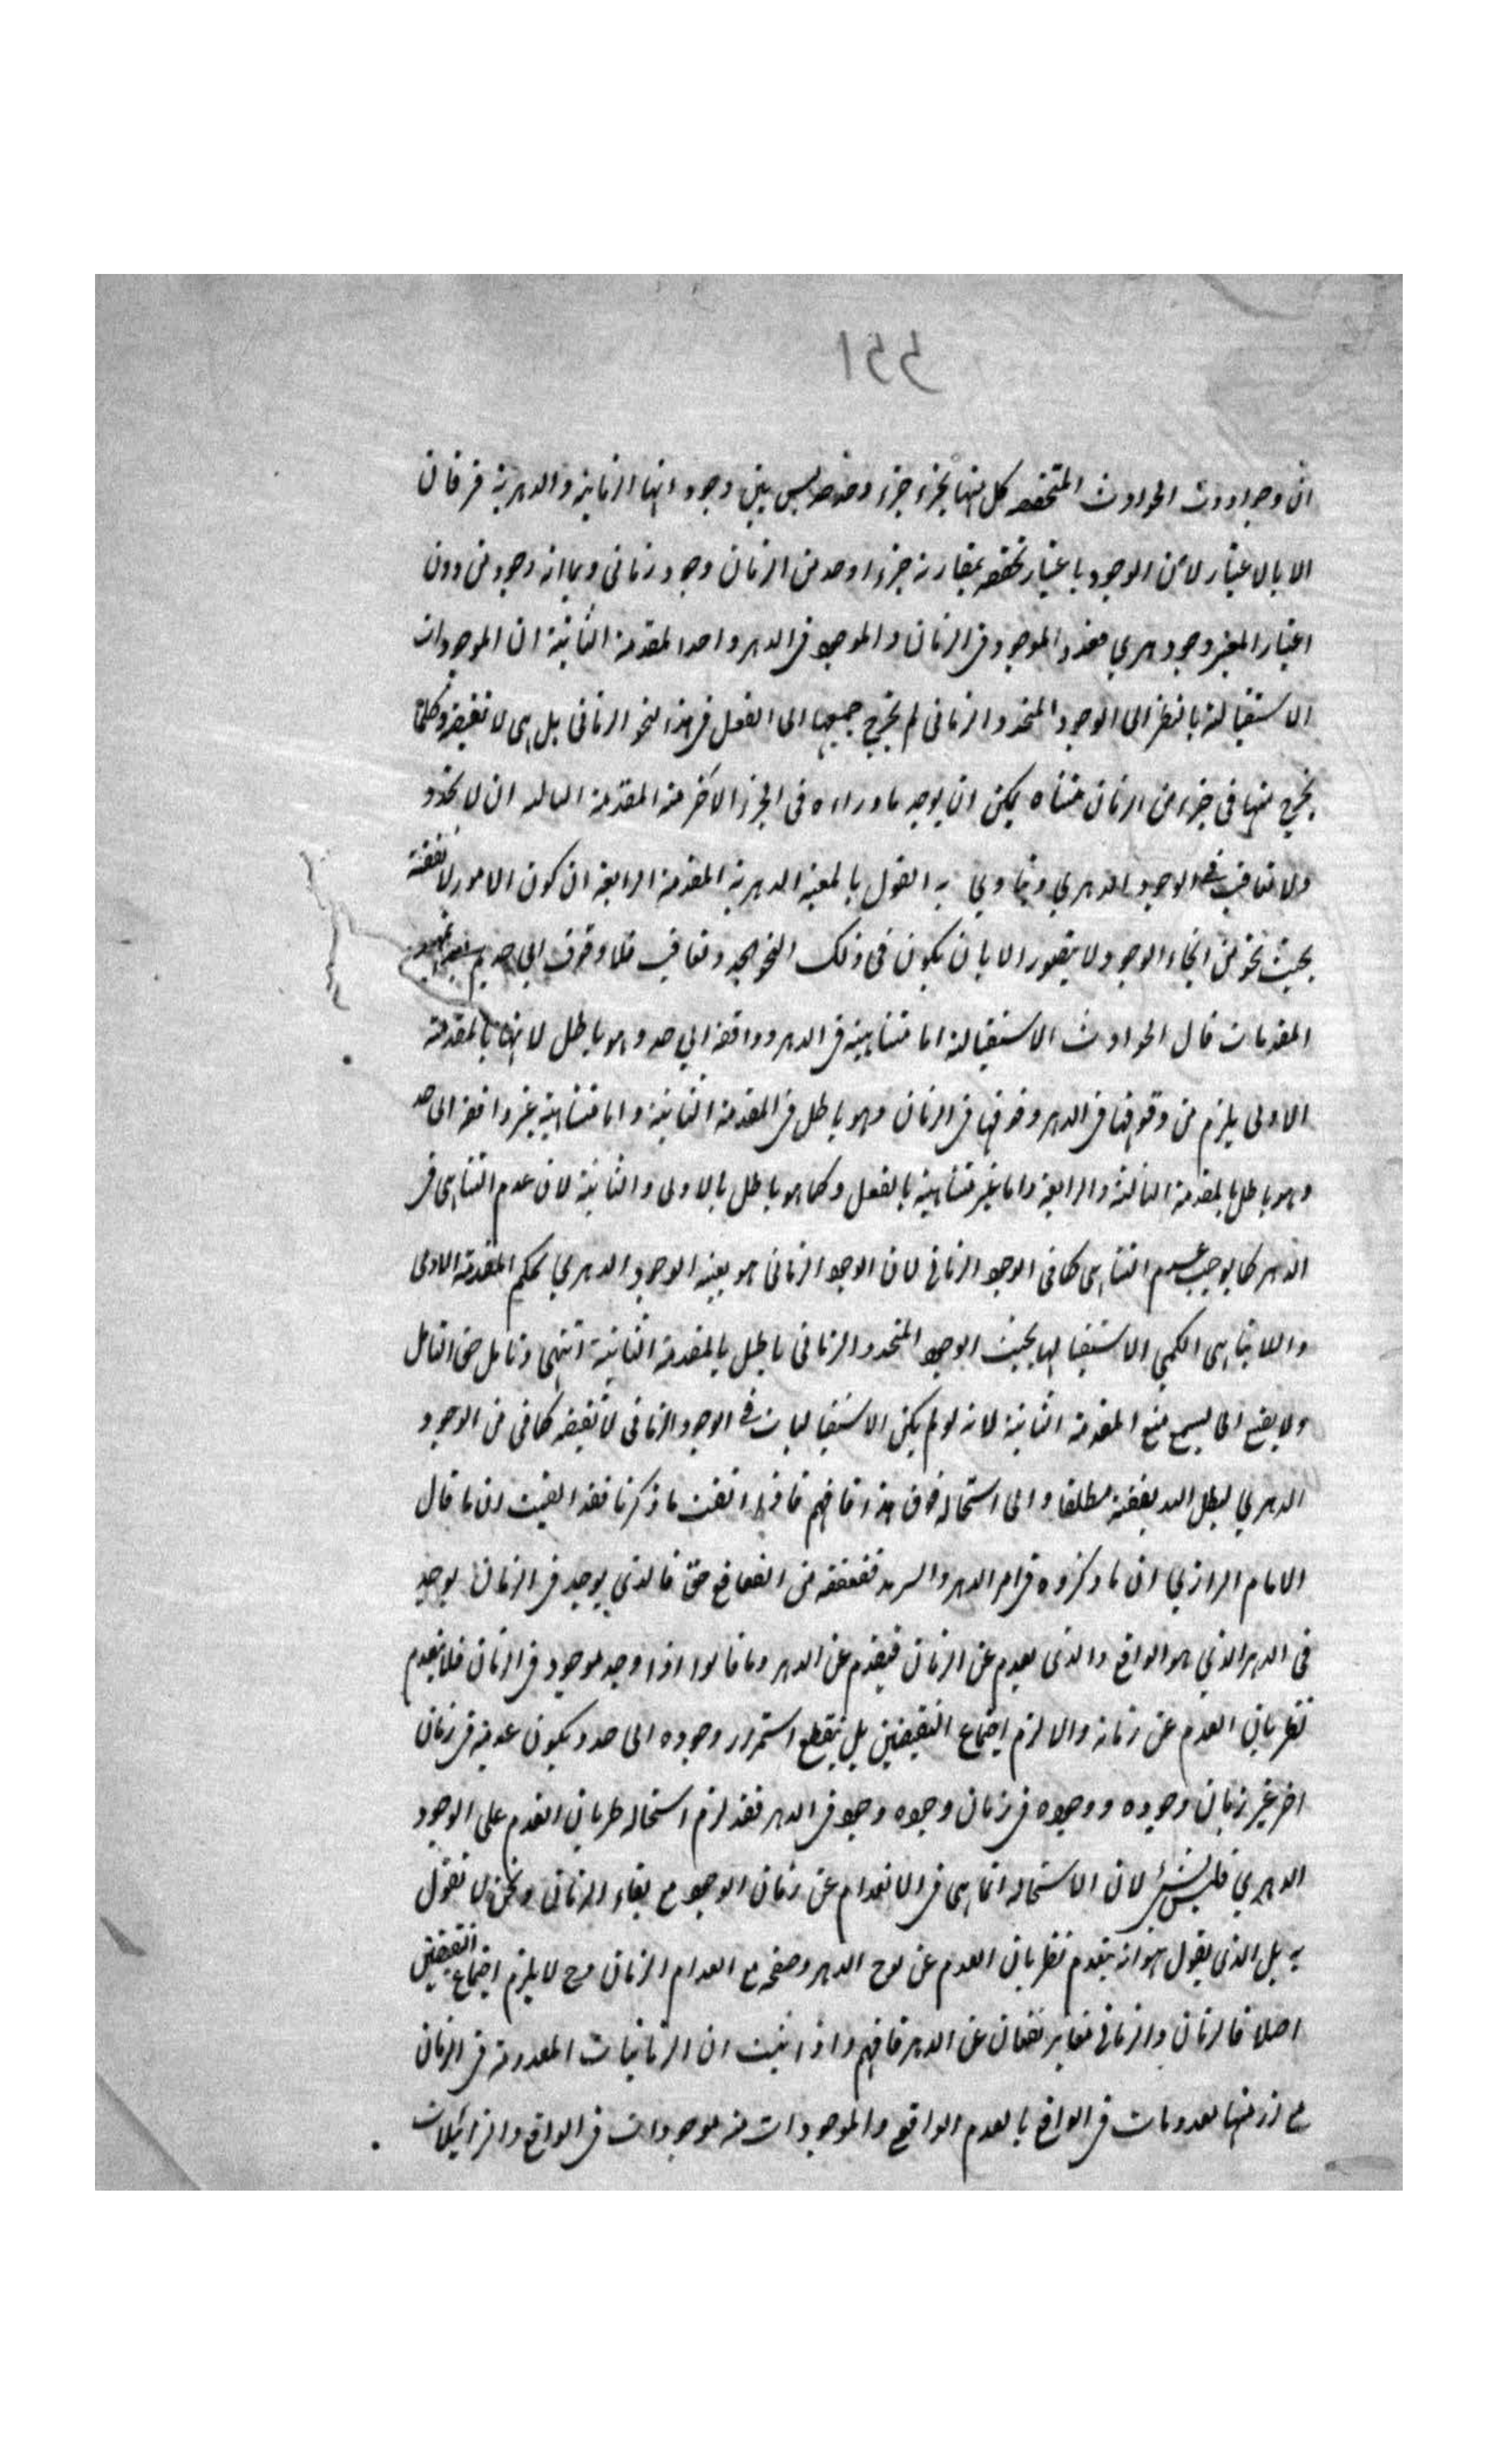 ان وجودات الحوادث المتحققه كل منها بجزء جزء وحد حد ليس بين وجوداتها الزمانية والدهرية فرقان
الا بالاعتبار لان الوجود باعتبار تحققه بمقارنة جزء او حد من الزمان وجود زماني وبما انه وجود من دون
اعتبار المعية وجود دهري فحدد الموجود في الزمان والموجود في الدهر واحد المقدمة الثانية ان الموجودات
الاستقبالية بالنظر الى الوجود المتجدد الزماني لم يخرج جميعها الى الفعل في هذا النحو الزماني بل هي لا تقفية وكلما
يخرج منها في جزء من الزمان متناه يمكن ان يوجد ما وراءه في الجزء الآخر منه المقدمة الثالثه ان لا تجدد
ولا تعاقب في الوجود الدهري وينادي به القول بالمعية الدهرية المقدمة الرابعة ان كون الامور لا تقفية
بحيث نحو من انحاء الوجود لا يتصور الا بان يكون في ذلك النحو تجدد وتعاقب فلا وقوف الى حد ثم بعد تمهيد
المقدمات قال الحوادث الاستقبالية اما متناهية في الدهر وواقفة الى حد وهو باطل لانها بالمقدمة
الاولى يلزم من وقوفها في الدهر وقوفها في الزمان وهو باطل في المقدمة الثانية واما متناهية غير واقفة الى حد
وهو باطل بالمقدمة الثالثة والرابعة واما غير متناهية بالفعل وكما هو باطل بالاولى والثانية لان عدم التناهي في
الدهر كما يوجب عدم التناهي كما في الوجود الزماني لان الوجود الزماني هو بعينه الوجود الدهري بحكم المقدمة الاولى
واللاتناهي الكمي الاستقبالها بحيث الوجود المتجدد الزماني باطل بالمقدمة الثانية انتهى وتأمل حق التامل
ولا يصغ الى ليسمع منع المقدمة الثانية لانه لو لم يكن الاستقباليات في الوجود الزماني لا تقفيه كما في من الوجود
الدهري لبطل اللايقفية مطلقا والى استحالة فوق هذا فافهم فاذا اتقنت ما ذكرنا فقد ايقنت ان ما قال
الامام الرازي ان ما ذكروه في امر الدهر والسرمد قعقعة من القعاقع حق فالذي يوجد في الزمان يوجد
في الدهر الذي هو الواقع والذي يعدم عن الزمان فيعدم عن الدهر وما قالوا اذا وجد موجود في الزمان فلا يعدم
بطريان العدم عن زمانه والا لزم اجتماع النقيضين بل ينقطع استمرار وجوده الى حد ويكون عدمه في زمان
اخر غير زمان وجوده ووجوده في زمان وجوده وجود في الدهر فقد لزم استحالة طريان العدم على الوجود
الدهري فليس بشيء لان الاستحالة انما هي في الانعدام عن زمان الوجود مع بقاء الزماني ونحن لا نقول
به بل الذي يقول هو انه يعدم بطريان العدم عن لوح الدهر وصفحه مع انعدام الزمان وح لا يلزم اجتماع النقيضين
اصلا فالزمان والزماني معا يرتفعان عن الدهر فافهم واذا ثبت ان الزمانيات المعدومة في الزمان
مع ازمنتها معدومات في الواقع بالعدم الواقع والموجودات منه موجودات في الواقع والزائلات